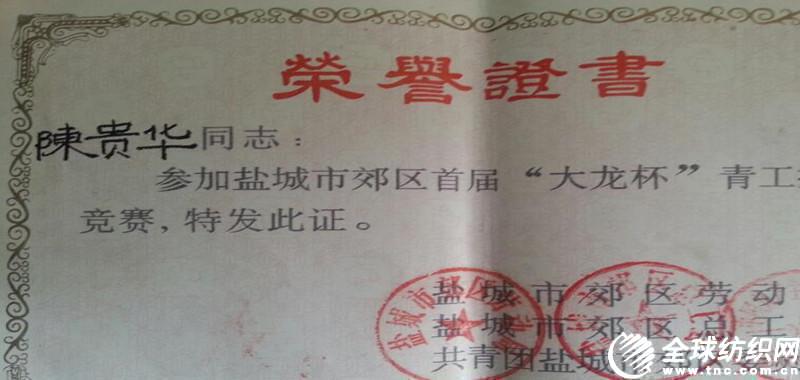 榮譽證書
陳贵华同志：
参加盐城市郊区首届“大龙杯”青工
竞赛，特发此证。
盐城市郊区劳动
盐城市郊区总工
共青团盐城
盐城市郊区
全球纺织网
www.tnc.com.cn